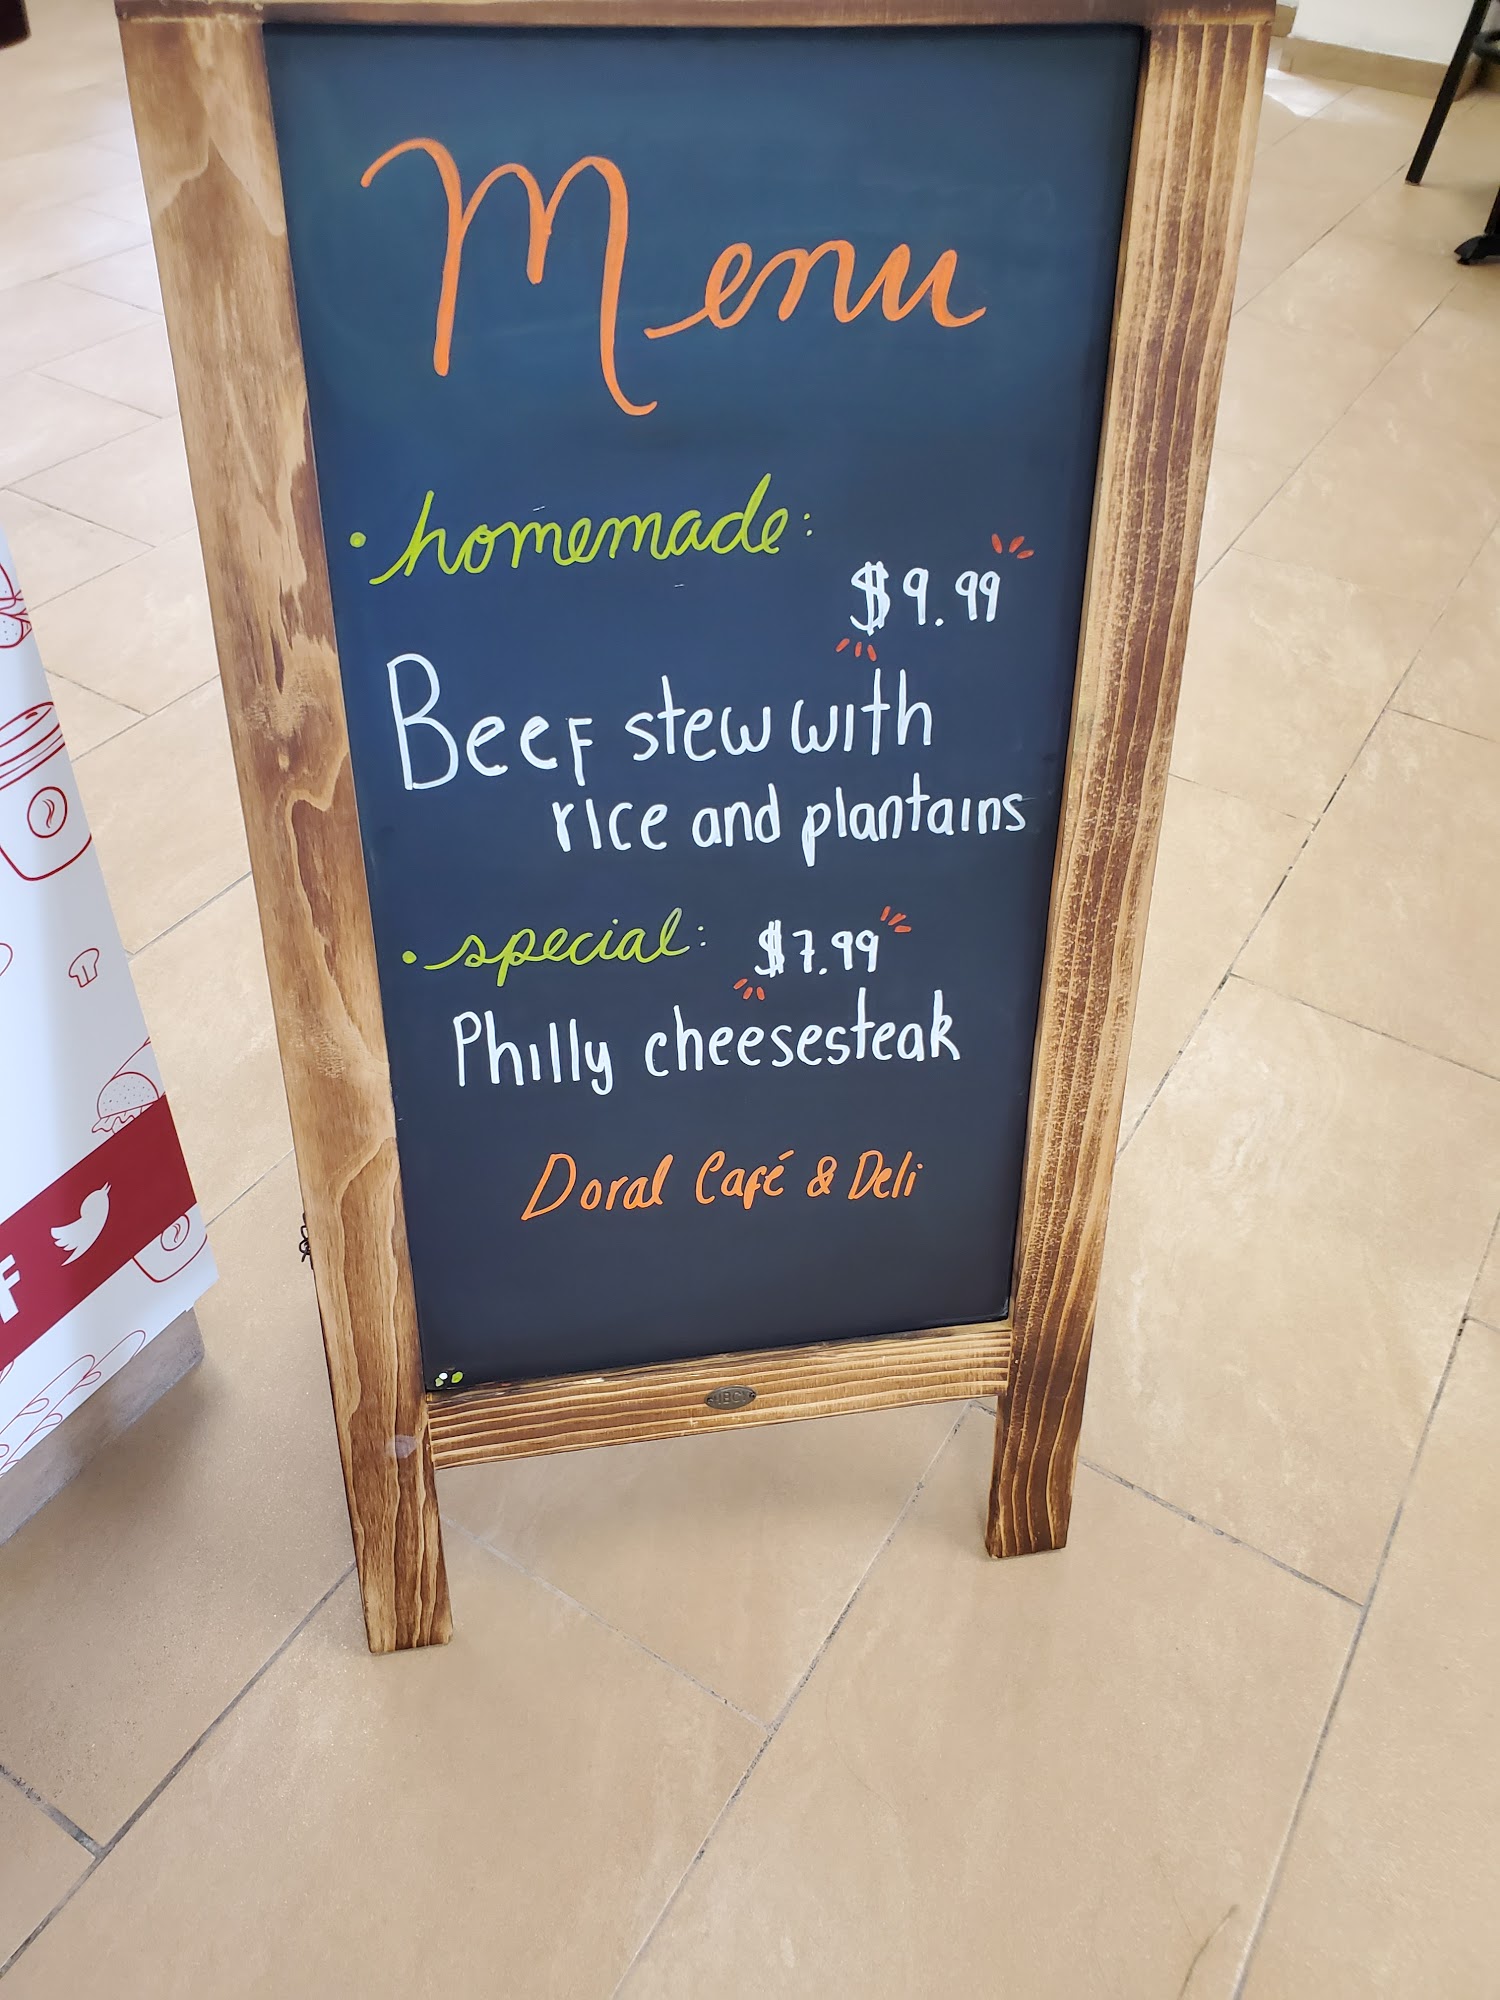 Menu
• homemade:
$9.99
Beef stew with
rice and plantains
• special: $7.99
Philly cheesesteak
Doral Café & Deli
f